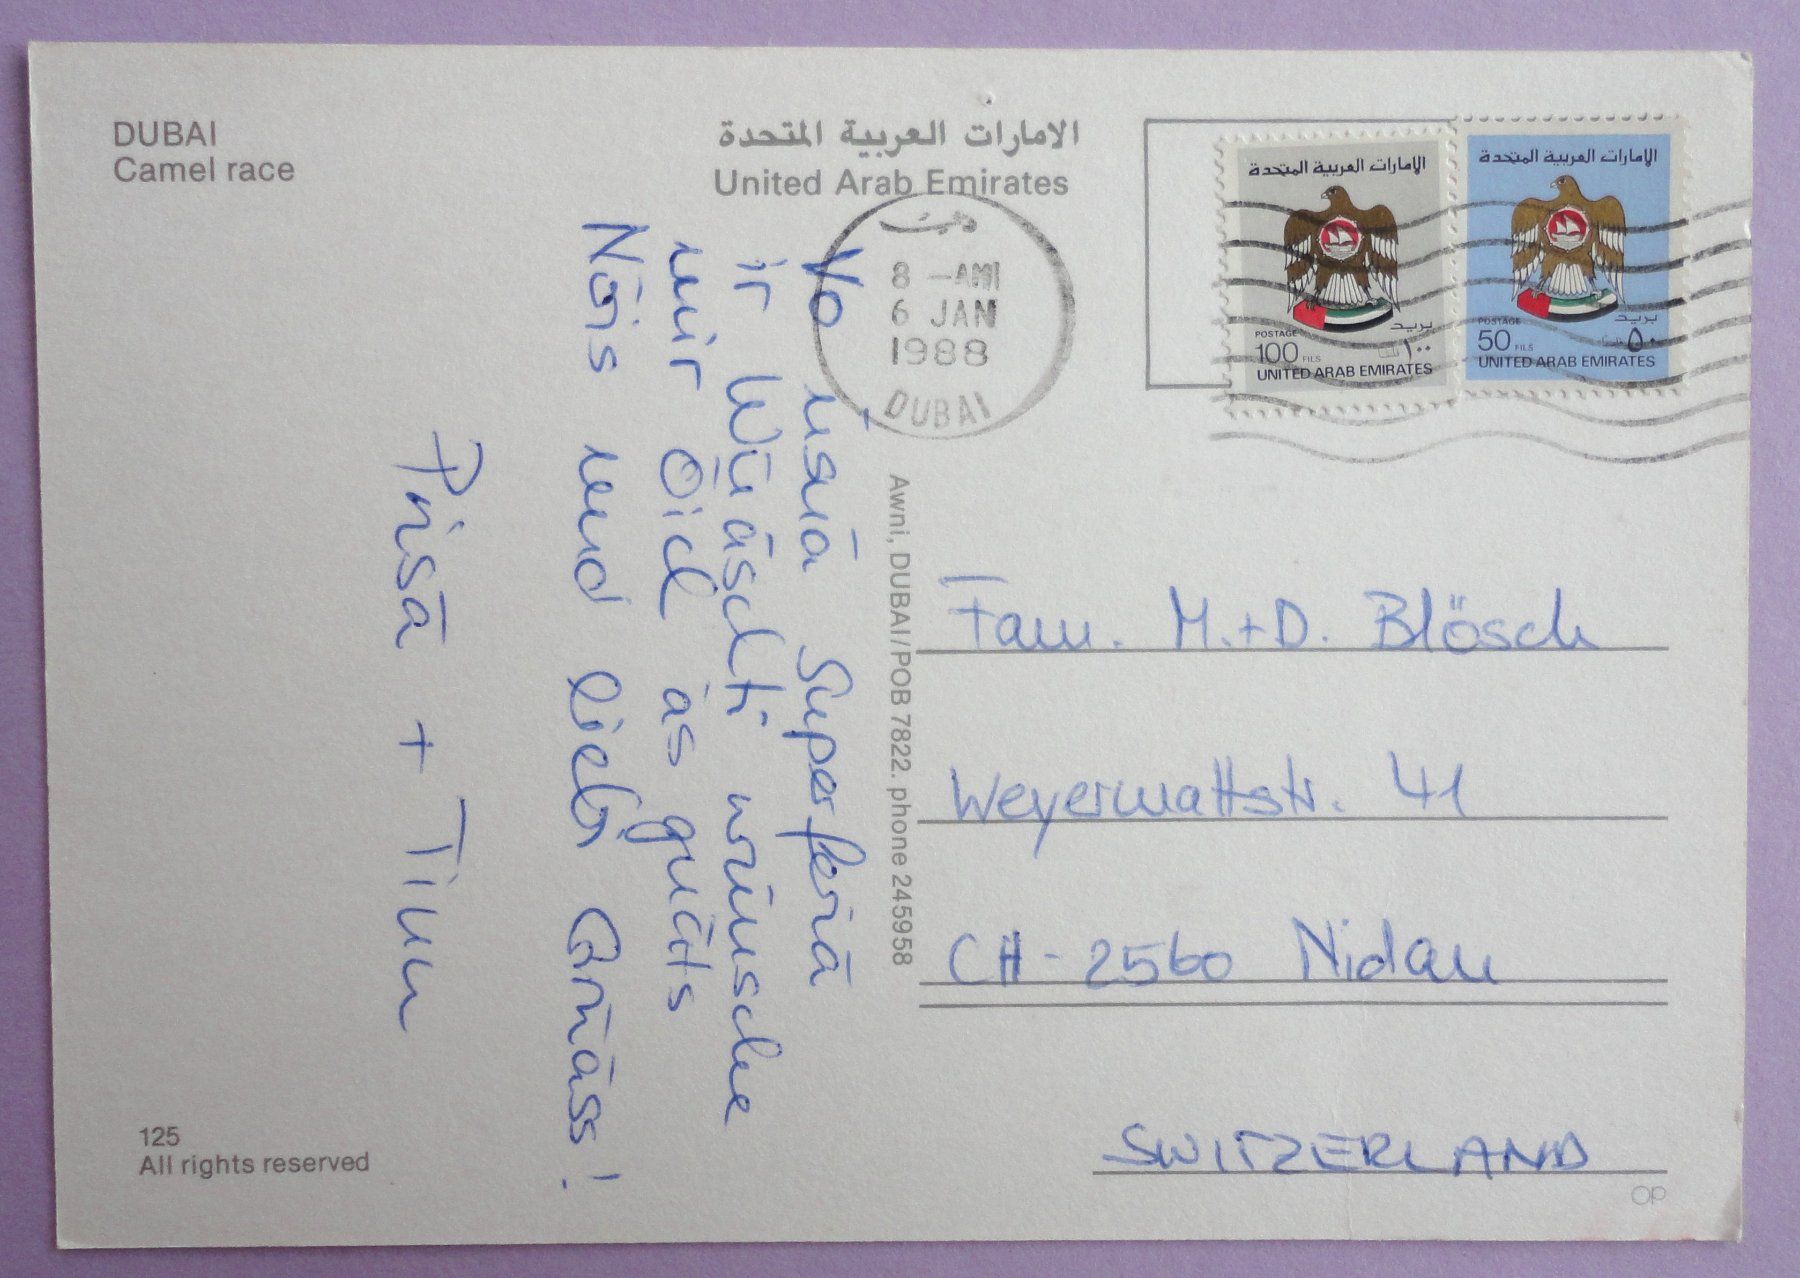 DUBAI
Camel race
الامارات العربية المتحدة
United Arab Emirates
دبي
8 -AM
6 JAN
1988
DUBAI
الإمارات العربية المتحدة
بريد
POSTAGE
100 FILS ١٠٠
UNITED ARAB EMIRATES
الإمارات العربية المتحدة
بريد
POSTAGE
50 FILS ٥٠
UNITED ARAB EMIRATES
Vo üsnä Superferiä
ir Wüäschti wünsche
mir Öich äs guäts
Nöis und liebi Grüäss!
Prisä + Tinu
Awni, DUBAI/POB 7822. phone 245958
Fam. M.+D. Blösch
Weyermattstr. 41
CH-2560 Nidau
SWITZERLAND
125
All rights reserved
OP